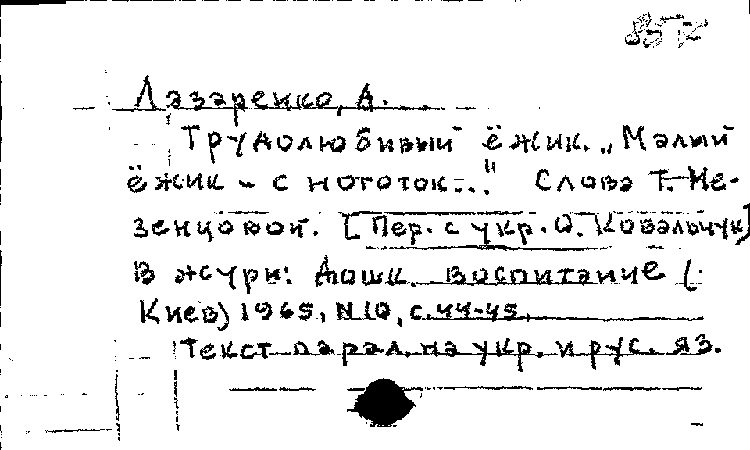 Лазаренко, А.
Трудолюбивый ёжик. „Малый
ёжик - с ноготок..." Слова Т. Ме-
зенцовой. [Пер. с укр. О. Ковальчук]
В журн: Дошк. воспитание (
Киев) 1965, N 10, с. 44-45.
Текст парал. на укр. и рус. яз.